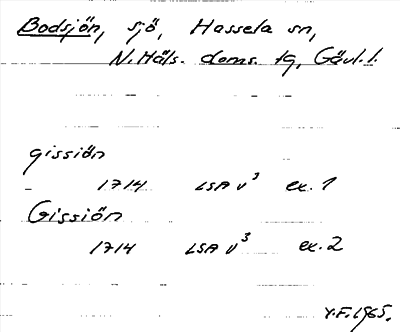 Bodsjön, sjö, Hassela sn,
N. Häls. doms. tg, Gävl. l.
gissiön
1714 LSA v³ ex. 1
Gissiön
1714 LSA v³ ex. 2
Y.F. 1965.